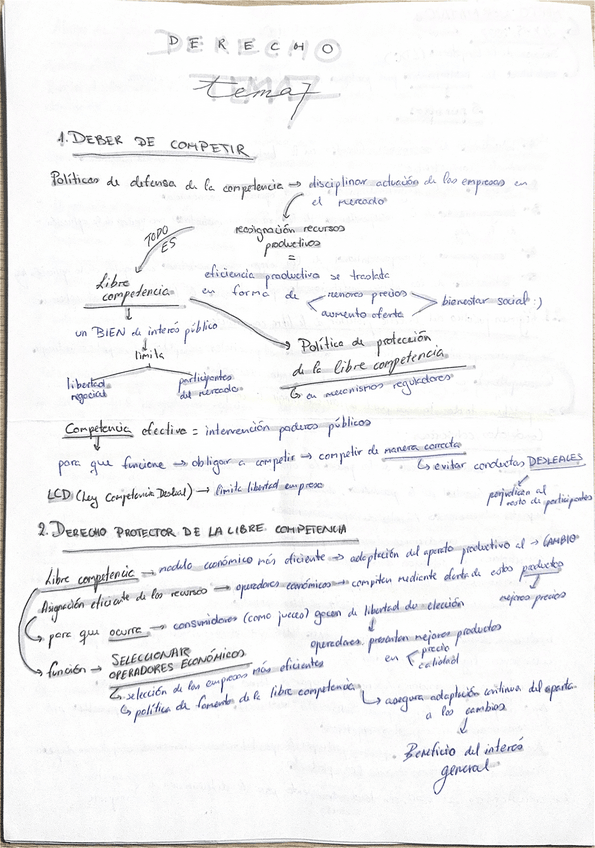 DERECHO
tema 7
1. DEBER DE COMPETIR
Políticas de defensa de la competencia → disciplinar actuación de las empresas en
el mercado
TODO ES
reasignación recursos
productivos
=
Libre
competencia
eficiencia productiva se traslada
en forma de
menores precios
aumento oferta
bienestar social :)
un BIEN de interés público
limita
libertad
negocial
participantes
del mercado
Política de protección
de la libre competencia
↳ en mecanismos reguladores
Competencia efectiva = intervención poderes públicos
para que funcione → obligar a competir → competir de manera correcta
↳ evitar conductas DESLEALES
perjudican al
resto de participantes
LCD (Ley Competencia Desleal) → limita libertad empresa
2. DERECHO PROTECTOR DE LA LIBRE COMPETENCIA
Libre competencia → modelo económico más eficiente → adaptación del aparato productivo al → CAMBIO
Asignación eficiente de los recursos → operadores económicos → compiten mediante oferta de estos productos
mejores precios
↳ para que ocurra → consumidores (como jueces) gocen de libertad de elección
operadores presentan mejores productos
en
precio
calidad
↳ función → SELECCIONAR
OPERADORES ECONÓMICOS
↳ selección de las empresas más eficientes
↳ política de fomento de la libre competencia
↳ asegura adaptación continua del aparato
a los cambios
Beneficio del interés
general